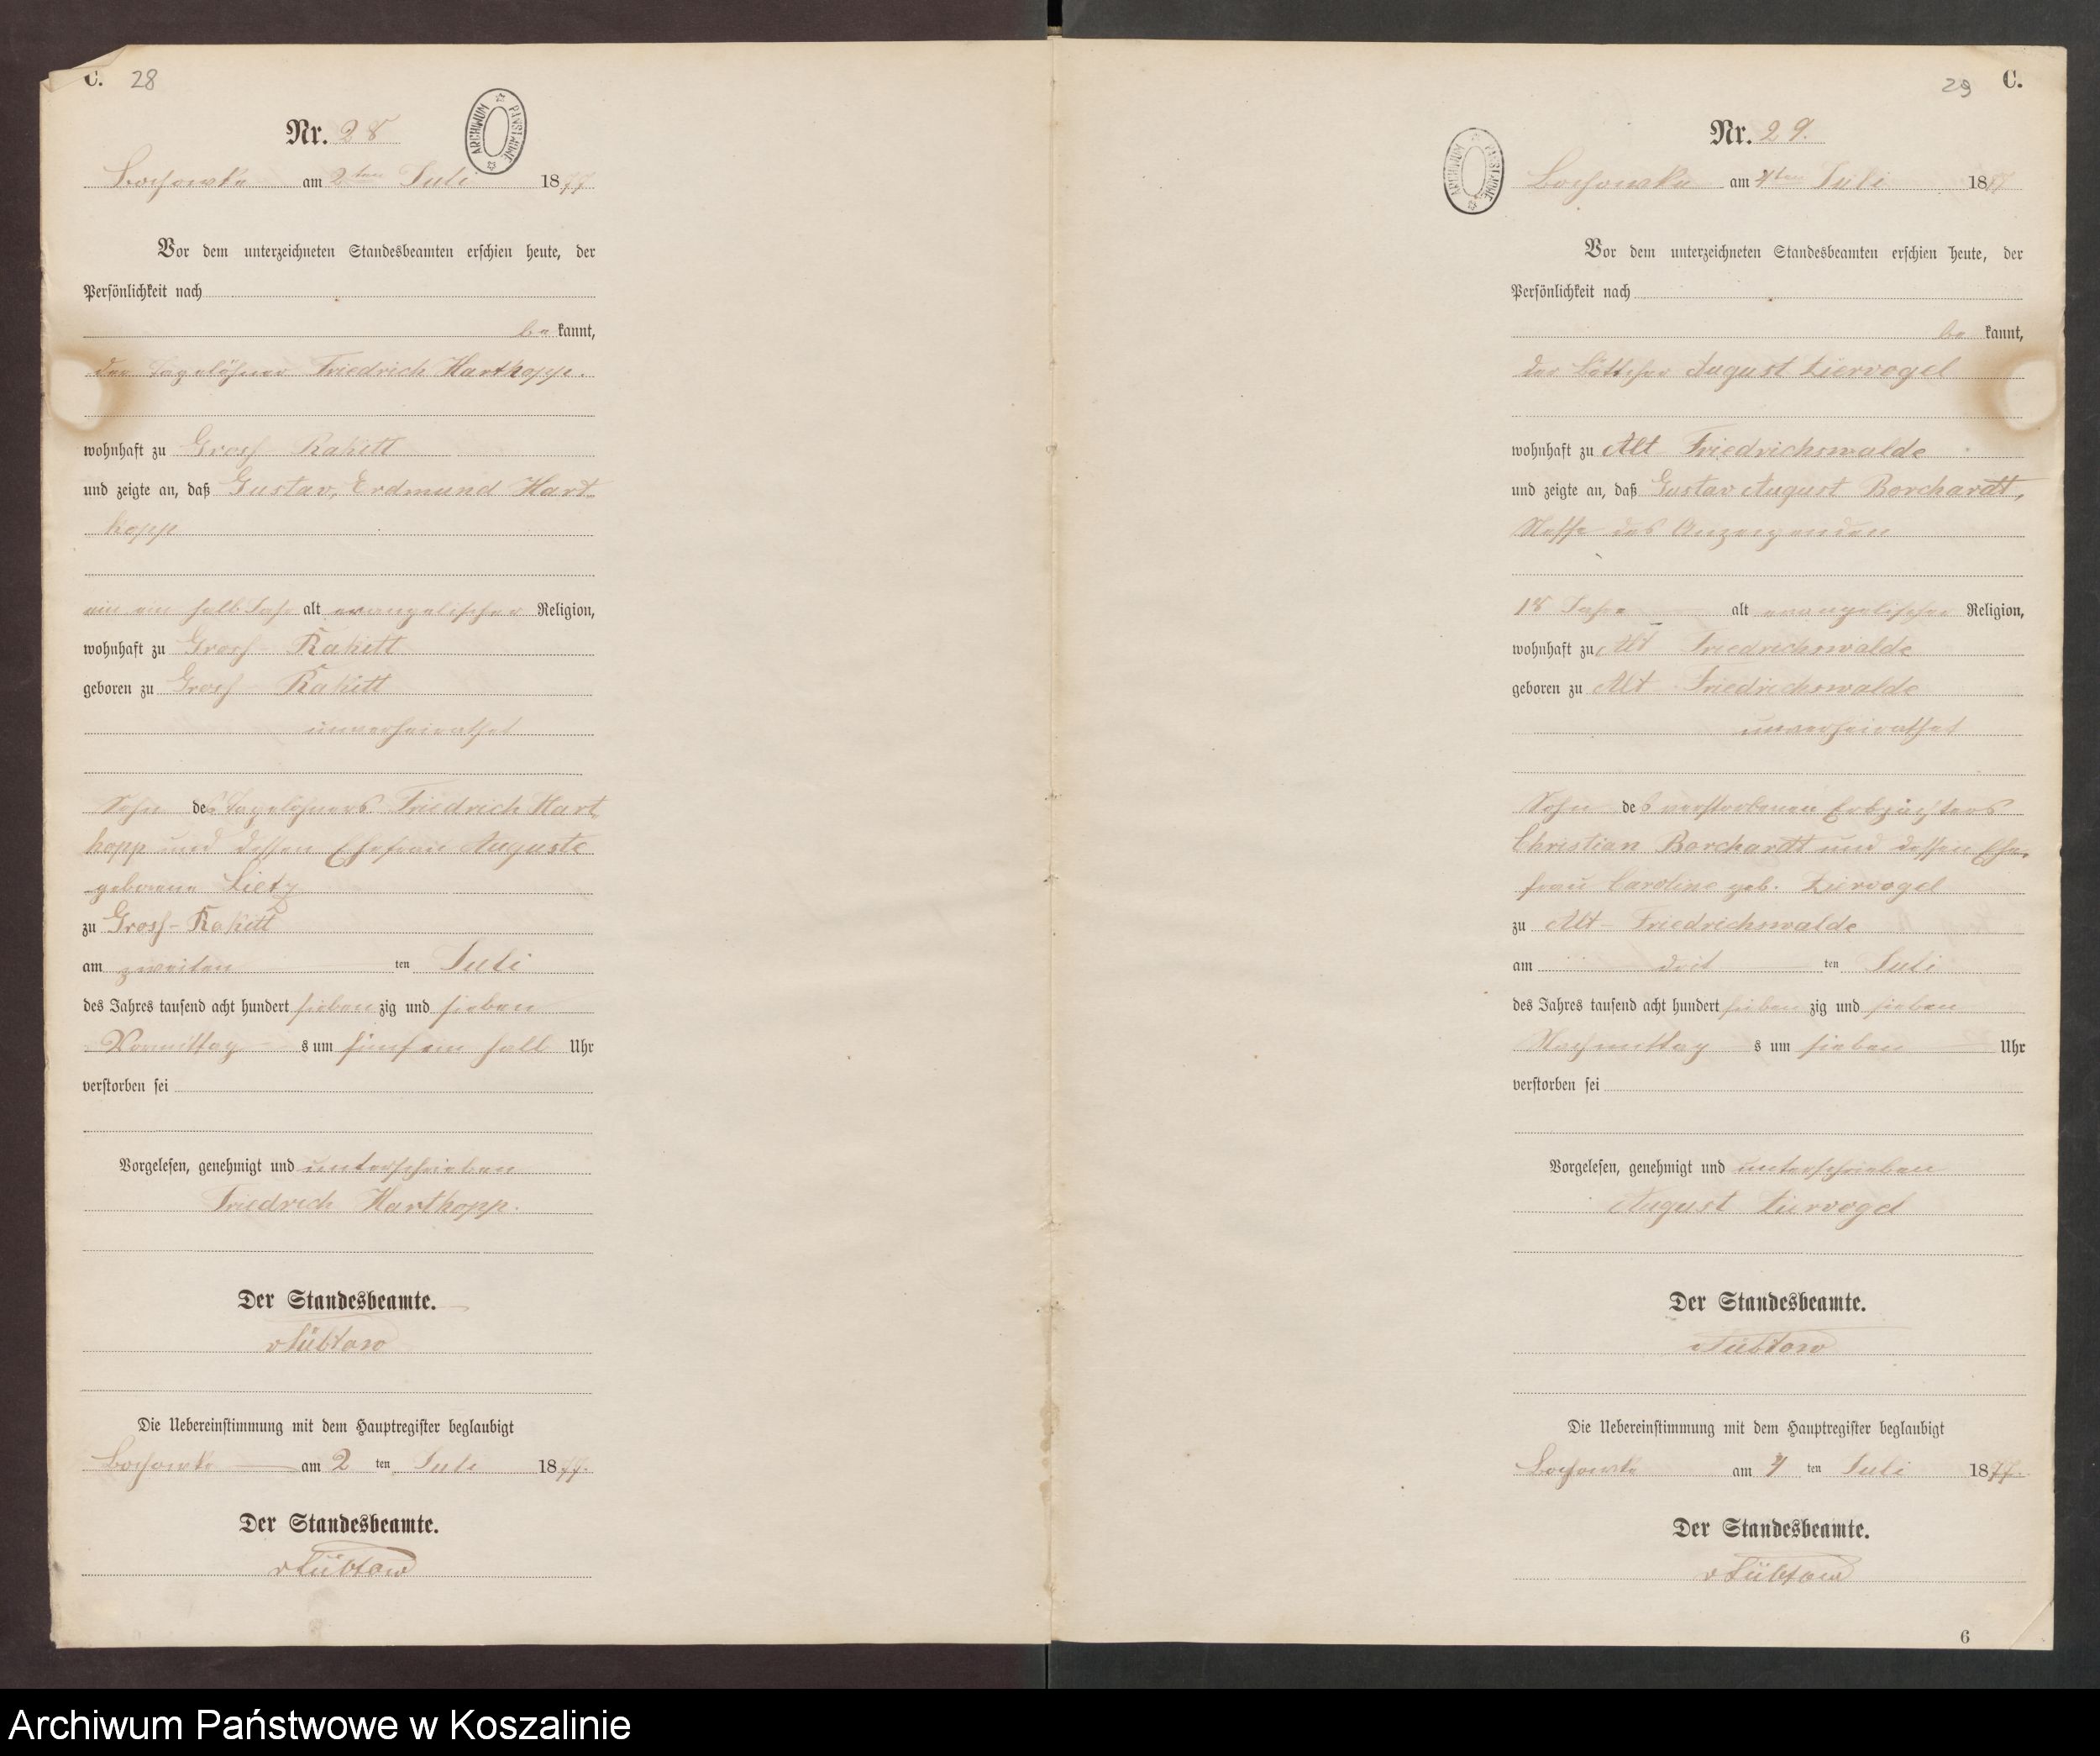 C. 28
Nr. 28
ARCHIWUM PAŃSTWOWE
Lochowko am 2ten Juli 1877
Vor dem unterzeichneten Standesbeamten erschien heute, der
Persönlichkeit nach
be kannt,
der Tagelöhner Friedrich Harthopp.
wohnhaft zu Gross Rakitt
und zeigte an, daß Gustav, Erdmund Hart-
hopp
ein ein halb Jahr alt evangelischer Religion,
wohnhaft zu Gross-Rakitt
geboren zu Gross Rakitt
unverheirathet
Sohn des Tagelöhners Friedrich Hart
hopp und dessen Ehefrau Auguste
geborene Lietz
zu Gross-Rakitt
am zweiten ten Juli
des Jahres tausend acht hundert sieben zig und sieben
Vormittag s um fünf ein halb Uhr
verstorben sei
Vorgelesen, genehmigt und unterschrieben
Friedrich Harthopp.
Der Standesbeamte.
vLübtow
Die Uebereinstimmung mit dem Hauptregister beglaubigt
Lochowko am 2 ten Juli 1877.
Der Standesbeamte.
vLübtow
29 C.
Nr. 29.
ARCHIWUM PAŃSTWOWE
Lochowko am 4ten Juli 1877
Vor dem unterzeichneten Standesbeamten erschien heute, der
Persönlichkeit nach
be kannt,
der Böttcher August Ziervogel
wohnhaft zu Alt Friedrichswalde
und zeigte an, daß Gustav August Borchardt,
Neffe des Anzeigenden
18 Jahre alt evangelischer Religion,
wohnhaft zu Alt Friedrichswalde
geboren zu Alt Friedrichswalde
unverheirathet
Sohn des verstorbenen Erbpächters
Christian Borchardt und dessen Ehe-
frau Caroline geb. Ziervogel
zu Alt-Friedrichswalde
am drit ten Juli
des Jahres tausend acht hundert sieben zig und sieben
Nachmittag s um sieben Uhr
verstorben sei
Vorgelesen, genehmigt und unterschrieben
August Ziervogel
Der Standesbeamte.
vLübtow
Die Uebereinstimmung mit dem Hauptregister beglaubigt
Lochowko am 4 ten Juli 1877.
Der Standesbeamte.
vLübtow
6
Archiwum Państwowe w Koszalinie